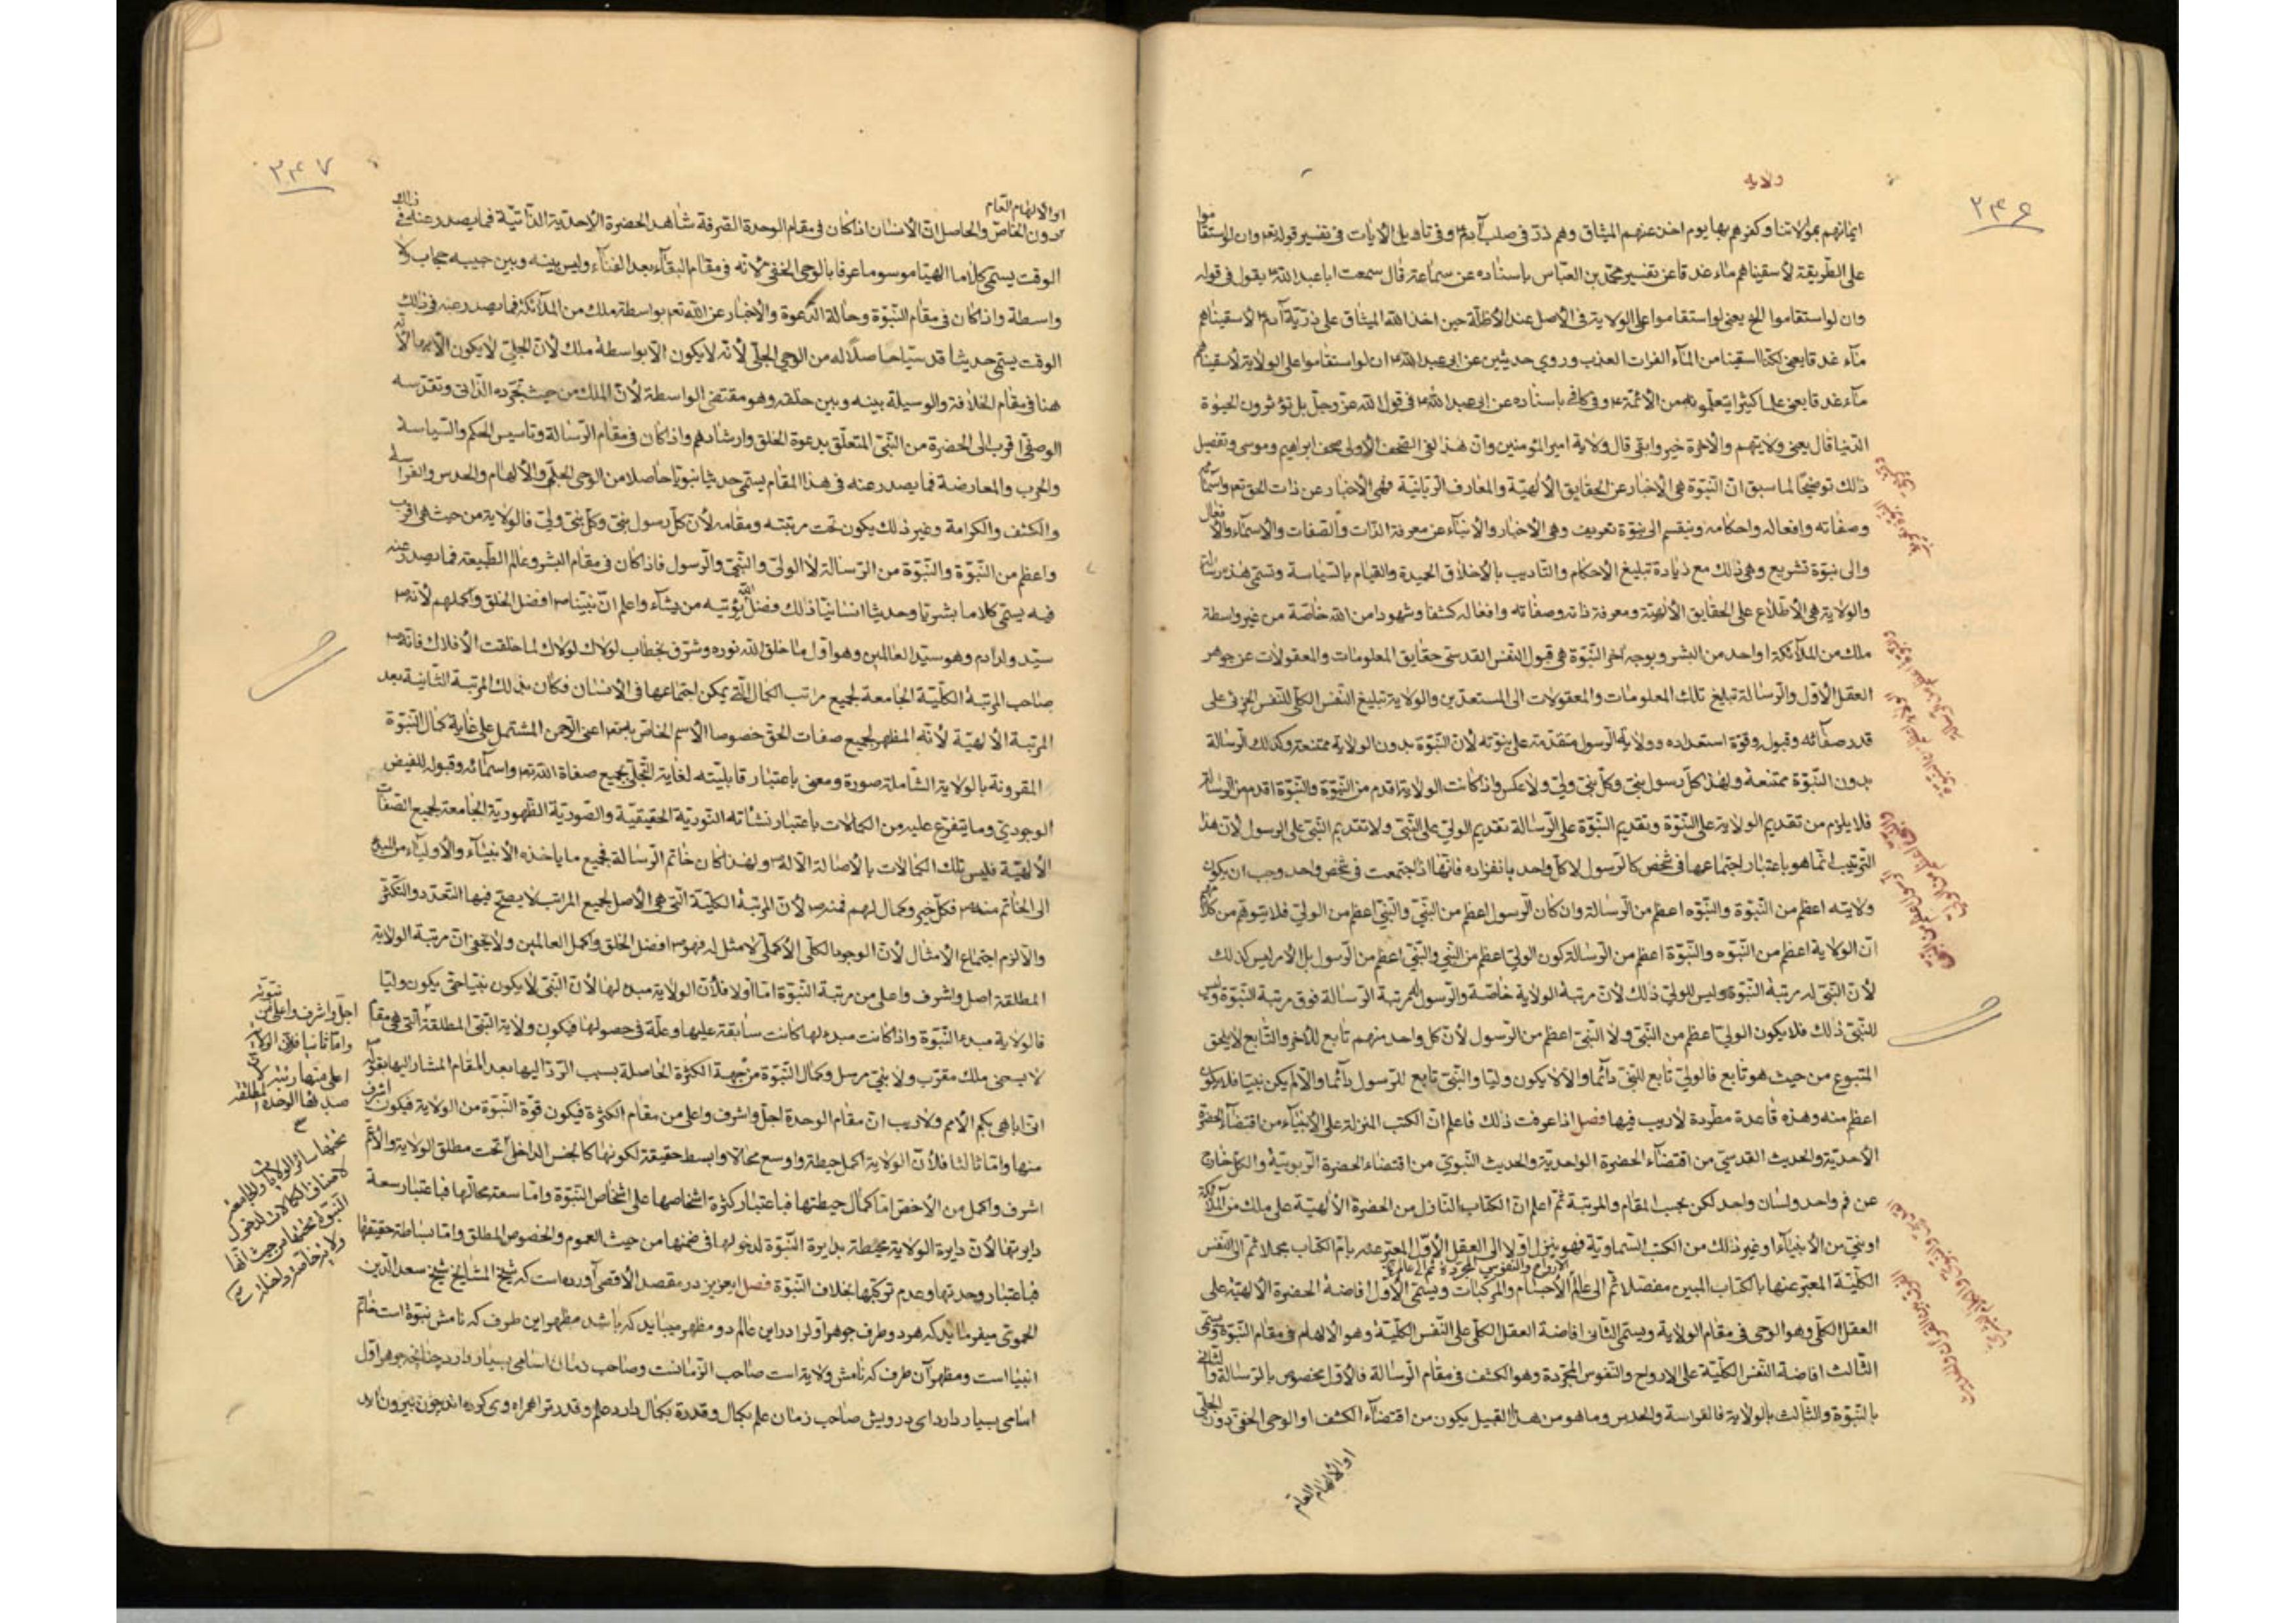 ۲۴۶
ولایه
ایمانهم بمولاتنا وکفرهم بها یوم اخذ عنهم المیثاق وهم ذر فی صلب آدم وفی تاویل الآیات فی تفسیر قوله تع وان لو استقاموا
علی الطریقة لأسقیناهم ماء غدقا عن تفسیر محمد بن العباس باسناده عن سماعة قال سمعت ابا عبد الله ع یقول فی قوله
وان لو استقاموا الخ یعنی لو استقاموا علی الولایة فی الاصل عند الأظلة حین اخذ الله المیثاق علی ذریة آدم لأسقیناهم
ماء غدقا یعنی لکنا اسقینا من المآء الفرات العذب وروی حدیثین عن ابی عبد الله ع ان لو استقاموا علی الولایة لأسقیناهم
مآء غدقا یعنی علما کثیرا یتعلمونه من الأئمة ع وفی کافی باسناده عن ابی عبد الله ع فی قول الله عز وجل بل تؤثرون الحیوة
الدنیا قال یعنی ولایتهم والاخرة خیر وابقی قال ولایة امیر المومنین وان هذا لفی الصحف الأولی صحف ابراهیم وموسی وتفصیل
ذلك توضیحا لما سبق ان النبوة هی الاخبار عن الحقایق الألهیة والمعارف الربانیة فهی الأخبار عن ذات الحق تع واسمآئه
وصفاته وافعاله واحکامه وینقسم الی نبوة تعریف وهی الأخبار والأنبآء عن معرفة الذات والصفات والاسمآء والأفعال
والی نبوة تشریع وهی ذلك مع زیادة تبلیغ الاحکام والتادیب بالأخلاق الحمیدة والقیام بالسیاسة وتسمی هذه رسالة
والولایة هی الأطلاع علی الحقایق الألهیة ومعرفة ذاته وصفاته وافعاله کشفا وشهودا من الله خاصة من غیر واسطة
ملك من الملآئکة او احد من البشر وبوجه اخر النبوة هی قبول النفس القدسی حقایق المعلومات والمعقولات عن جوهر
العقل الأول والرسالة تبلیغ تلك المعلومات والمعقولات الی المستعدین والولایة تبلیغ النفس الکلی للنفس الجزئی علی
قدر صفائه وقبوله وقوة استعداده وولایة الرسول متقدمة علی نبوته لأن النبوة بدون الولایة ممتنعة وکذلك الرسالة
بدون النبوة ممتنعة ولهذا کل رسول نبی وکل نبی ولی ولا عکس واذا کانت الولایة اقدم من النبوة والنبوة اقدم من الرسالة
فلا یلزم من تقدیم الولایة علی النبوة وتقدیم النبوة علی الرسالة تقدیم الولی علی النبی ولا تقدیم النبی علی الرسول لأن هذا
الترتیب انما هو باعتبار اجتماعها فی شخص کالرسول لا کل واحد بانفراده فانها اذا اجتمعت فی شخص واحد وجب ان یکون
ولایته اعظم من النبوة والنبوه اعظم من الرسالة وان کان الرسول اعظم من النبی والنبی اعظم من الولی فلا یتوهم من کلامهم
ان الولایة اعظم من النبوه والنبوة اعظم من الرسالة کون الولی اعظم من النبی والنبی اعظم من الرسول بل الأمر لیس کذلك
لأن النبی له مرتبة النبوة ولیس للولی ذلك لأن مرتبة الولایة خاصة والرسول له مرتبة الرسالة فوق مرتبة النبوة ولیس
للنبی ذلك فلا یکون الولی اعظم من النبی ولا النبی اعظم من الرسول لأن کل واحد منهم تابع للآخر والتابع لا یلحق
المتبوع من حیث هو تابع فالولی تابع للنبی دآئما والا لا یکون ولیا والنبی تابع للرسول دآئما والا لم یکن نبیا فلا یکون
اعظم منه وهذه قاعدة مطردة لا ریب فیها فصل اذا عرفت ذلك فاعلم ان الکتب المنزلة علی الأنبیآء من اقتضاء الحضرة
الأحدیة والحدیث القدسی من اقتضآء الحضرة الواحدیة والحدیث النبوی من اقتضاء الحضرة الربوبیة والکل خارج
عن فم واحد ولسان واحد لکن بحسب المقام والمرتبة ثم اعلم ان الکتاب النازل من الحضرة الألهیة علی ملك من الملآئکة
او نبی من الأنبیآء او غیر ذلك من الکتب السماویة فهو ینزل اولا الی العقل الأول المعبر عنه بام الکتاب مجملا ثم الی النفس
الکلیة المعبر عنها بالکتاب المبین مفصلا ثم الی عالم الأرواح والنفوس المجردة ثم الی عالم الأجسام والمرکبات ویسمی الأول افاضة الحضرة الألهیة علی
العقل الکلی وهو الوحی فی مقام الولایة ویسمی الثانی افاضة العقل الکلی علی النفس الکلیة وهو الألهام فی مقام النبوة ویسمی
الثالث افاضة النفس الکلیة علی الارواح والنفوس المجردة وهو الکشف فی مقام الرسالة فالأول مخصوص بالرسالة والثانی
بالنبوة والثالث بالولایة فالفراسة والحدس وما هو من هذا القبیل یکون من اقتضآء الکشف او الوحی الخفی دون الجلی
او الألهام العام
۲۴۷
او الألهام العام
دون الخاص والحاصل ان الأنسان اذا کان فی مقام الوحدة الصرفة شاهد الحضرة الاحدیة الذاتیة فما یصدر عنه فی ذلك
الوقت یسمی کلاما الهیا موسوما عرفا بالوحی الخفی لأنه فی مقام البقآء بعد الفنآء ولیس بینه وبین حبیبه حجاب ولا
واسطة واذا کان فی مقام النبوة وحالة الدعوة والأخبار عن الله تع بواسطة ملك من الملآئکة فما یصدر عنه فی ذلك
الوقت یسمی حدیثا قدسیا حاصلا له من الوحی الجلی لأنه لا یکون الا بواسطة ملك لأن الجلی لا یکون الا به
هنا فی مقام الخلافة والوسیلة بینه وبین خلقه وهو مقتضی الواسطة لأن الملك من حیث تجرده الذاتی وتقدسه
الوصفی اقرب الی الحضرة من النبی المتعلق بدعوة الخلق وارشادهم واذا کان فی مقام الرسالة وتاسیس الحکم والسیاسة
والحرب والمعارضة فما یصدر عنه فی هذا المقام یسمی حدیثا نبویا حاصلا من الوحی الجلی والألهام والحدس والفراسة
والکشف والکرامة وغیر ذلك یکون تحت مرتبته ومقامه لأن کل رسول نبی وکل نبی ولی فالولایة من حیث هی اقرب
واعظم من النبوة والنبوة من الرسالة لا الولی والنبی والرسول فاذا کان فی مقام البشر وعالم الطبیعة فما یصدر عنه
فیه یسمی کلاما بشریا وحدیثا انسانیا ذلك فضل الله یؤتیه من یشآء واعلم ان نبینا ص افضل الخلق واکملهم لأنه ص
سید ولد ادم وهو سید العالمین وهو اول ما خلق الله نوره وشرف بخطاب لولاك لولاك لما خلقت الأفلاك فانه ص
صاحب المرتبة الکلیة الجامعة لجمیع مراتب الکمال التی یمکن اجتماعها فی الأنسان فکان بذلك المرتبة الثانیة بعد
المرتبة الألهیة لأنه المظهر لجمیع صفات الحق خصوصا الأسم الخاص به تع اعنی الرحمن المشتمل علی غایة کمال النبوة
المقرونة بالولایة الشاملة صورة ومعنی باعتبار قابلیته لغایة التجلی بجمیع صفاة الله تع واسمآئه وقبوله للفیض
الوجودی وما یتفرع علیه من الکمالات باعتبار نشاته النوریة الحقیقیة والصوریة الظهوریة الجامعة لجمیع الصفات
الألهیة فلیس تلك الکمالات بالأصالة الا له ص ولهذا کان خاتم الرسالة فجمیع ما یاخذه الأنبیآء والأولیآء من المبدء
الی الخاتم منه ص فکل خیر وکمال لهم فمنه ص لأن المرتبة الکلیة التی هی الأصل لجمیع المراتب لا یصح فیها التعدد والتکثر
والا لزم اجتماع الأمثال لأن الوجود الکلی الأکملی لا مثل له فهو ص افضل الخلق واکمل العالمین ولا یخفی ان مرتبة الولایة
المطلقة اصل واشرف واعلی من مرتبة النبوة اما اولا فلأن الولایة مبدء لها لأن النبی لا یکون نبیا حتی یکون ولیا
فالولایة مبدء النبوة واذا کانت مبدء لها کانت سابقة علیها وعلة فی حصولها فیکون ولایة النبی المطلقة التی هی مقام
لا یسعنی ملك مقرب ولا نبی مرسل وکمال النبوة من جهة الکثرة الحاصلة بسبب الرد الیها بعد المقام المشار الیها بقوله
انی اباهی بکم الأمم ولا ریب ان مقام الوحدة اجل واشرف واعلی من مقام الکثرة فیکون قوة النبوة من الولایة فیکون اشرف
منها واما ثالثا فلأن الولایة اکمل حیطة واوسع مجالا وابسط حقیقة لکونها کالجنس الداخل تحت مطلق الولایة والأعم
اشرف واکمل من الأخص اما کمال حیطتها فباعتبار کثرة اشخاصها علی اشخاص النبوة واما سعة مجالها فباعتبار سعة
دایرتها لأن دایرة الولایة محیطة بدایرة النبوة لدخولها فی ضمنها من حیث العموم والخصوص المطلق واما بساطة حقیقتها
فباعتبار وحدتها وعدم ترکبها بخلاف النبوة فصل ایعزیز در مقصد الأقصی آورده است که شیخ المشایخ شیخ سعد الدین
الحموی میفرماید که هر دو طرف جوهر اول را در این عالم دو مظهر میباید که باشد مظهر این طرف که نامش نبوة است خاتم
انبیا است ومظهر آن طرف که نامش ولایة است صاحب الزمانست وصاحب زمان اسامی بسیار دارد چنانچه جوهر اول
اسامی بسیار دارد ای درویش صاحب زمان علم بکمال وقدرة بکمال دارد علم وقدرة را همراه وی کرده اند چون بیرون آید
نبوته
اجل واشرف واعلی من
واما ثانیا فلأن الولایة